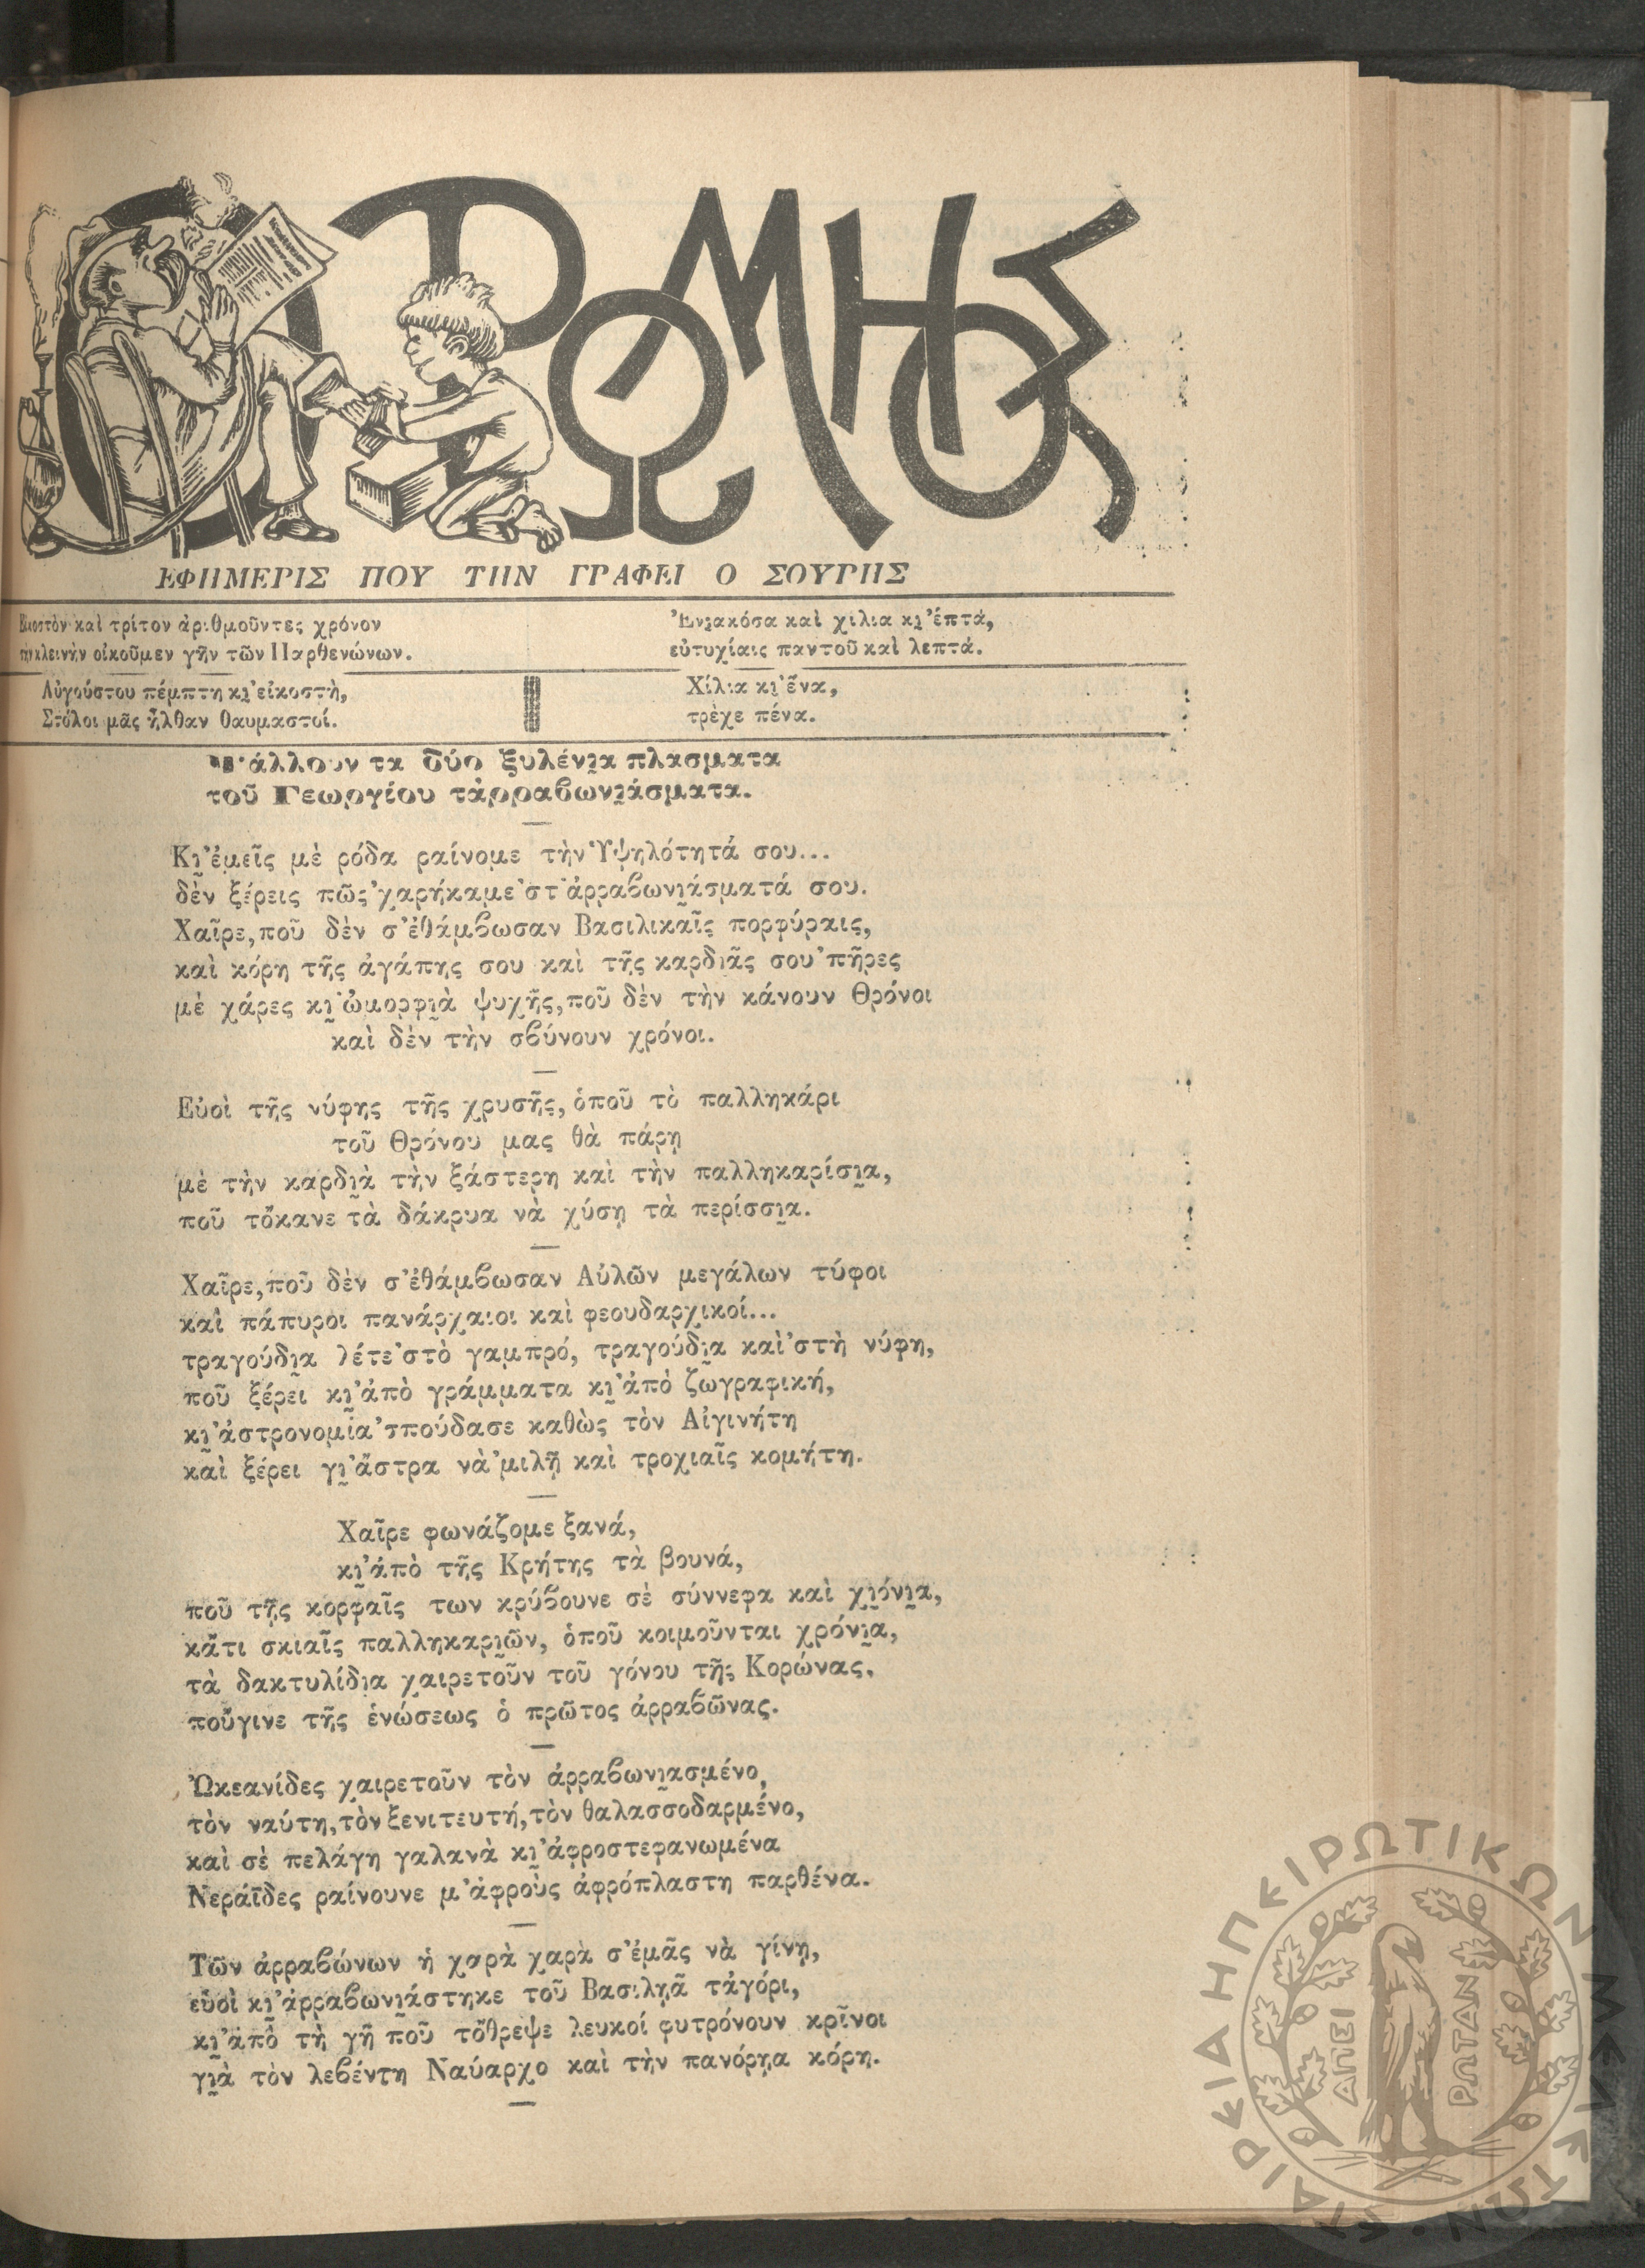 Ο ΡΩΜΗΟΣ
ΕΦΗΜΕΡΙΣ ΠΟΥ ΤΗΝ ΓΡΑΦΕΙ Ο ΣΟΥΡΗΣ
καὶ τρίτον ἀριθμοῦντες χρόνον
κλεινὴν οἰκοῦμεν γῆν τῶν Παρθενώνων.
Ἐννι̯ακόσα καὶ χίλια κι̯ ἑπτά,
εὐτυχίαις παντοῦ καὶ λεπτά.
Αὐγούστου πέμπτη κι̯ εἰκοστή,
Στόλοι μᾶς ἦλθαν θαυμαστοί.
Χίλια κι̯ ἕνα,
τρέχε πένα.
Ψάλλουν τα δύο ξυλένι̯α πλασματα
τοῦ Γεωργίου τἀρραβωνι̯άσματα.
Κι̯ ἐμεῖς μὲ ρόδα ραίνομε τὴν Ὑψηλότητά σου...
δὲν ξέρεις πῶς ’χαρήκαμε ’στ’ ἀρραβωνι̯άσματά σου.
Χαῖρε, ποῦ δὲν σ’ ἐθάμβωσαν Βασιλικαῖς πορφύραις,
καὶ κόρη τῆς ἀγάπης σου καὶ τῆς καρδιᾶς σου ’πῆρες
μὲ χάρες κι̯ ὠμορφι̯ὰ ψυχῆς, ποῦ δὲν τὴν κάνουν Θρόνοι
καὶ δὲν τὴν σβύνουν χρόνοι.
Εὐοὶ τῆς νύφης τῆς χρυσῆς, ὁποῦ τὸ παλληκάρι
τοῦ Θρόνου μας θὰ πάρῃ
μὲ τὴν καρδι̯ὰ τὴν ξάστερη καὶ τὴν παλληκαρίσι̯α,
ποῦ τὄκανε τὰ δάκρυα νὰ χύσῃ τὰ περίσσι̯α.
Χαῖρε, ποῦ δὲν σ’ ἐθάμβωσαν Αὐλῶν μεγάλων τύφοι
καὶ πάπυροι πανάρχαιοι καὶ φεουδαρχικοί...
τραγούδι̯α λέτε ’στὸ γαμπρό, τραγούδι̯α καὶ ’στὴ νύφη,
ποῦ ξέρει κι̯ ἀπὸ γράμματα κι̯ ἀπὸ ζωγραφική,
κι̯ ἀστρονομία ’σπούδασε καθὼς τὸν Αἰγινήτη
καὶ ξέρει γι̯ ἄστρα νὰ ’μιλῇ καὶ τροχιαῖς κομήτη.
Χαῖρε φωνάζομε ξανά,
κι̯ ἀπὸ τῆς Κρήτης τὰ βουνά,
ποῦ τῆς κορφαῖς των κρύβουνε σὲ σύννεφα καὶ χι̯όνι̯α,
κἄτι σκιαῖς παλληκαρι̯ῶν, ὁποῦ κοιμοῦνται χρόνι̯α,
τὰ δακτυλίδι̯α χαιρετοῦν τοῦ γόνου τῆς Κορώνας,
ποὔγινε τῆς ἑνώσεως ὁ πρῶτος ἀρραβῶνας.
Ὠκεανίδες χαιρετοῦν τὸν ἀρραβωνι̯ασμένο,
τὸν ναύτη, τὸν ξενιτευτή, τὸν θαλασσοδαρμένο,
καὶ σὲ πελάγη γαλανὰ κι̯ ἀφροστεφανωμένα
Νεράϊδες ραίνουνε μ’ ἀφροὺς ἀφρόπλαστη παρθένα.
Τῶν ἀρραβώνων ἡ χαρὰ χαρὰ σ’ ἐμᾶς νὰ γίνῃ,
εὐοὶ κι̯ ἀρραβωνι̯άστηκε τοῦ Βασιλῃᾶ τἀγόρι,
κι̯ ἀπὸ τὴ γῆ ποῦ τὄθρεψε λευκοί φυτρόνουν κρῖνοι
γι̯ὰ τὸν λεβέντη Ναύαρχο καὶ τὴν πανόρῃα κόρη.
ΕΤΑΙΡΕΙΑ ΗΠΕΙΡΩΤΙΚΩΝ ΜΕΛΕΤΩΝ
ΑΠΕΙ
ΡΩΤΑΝ